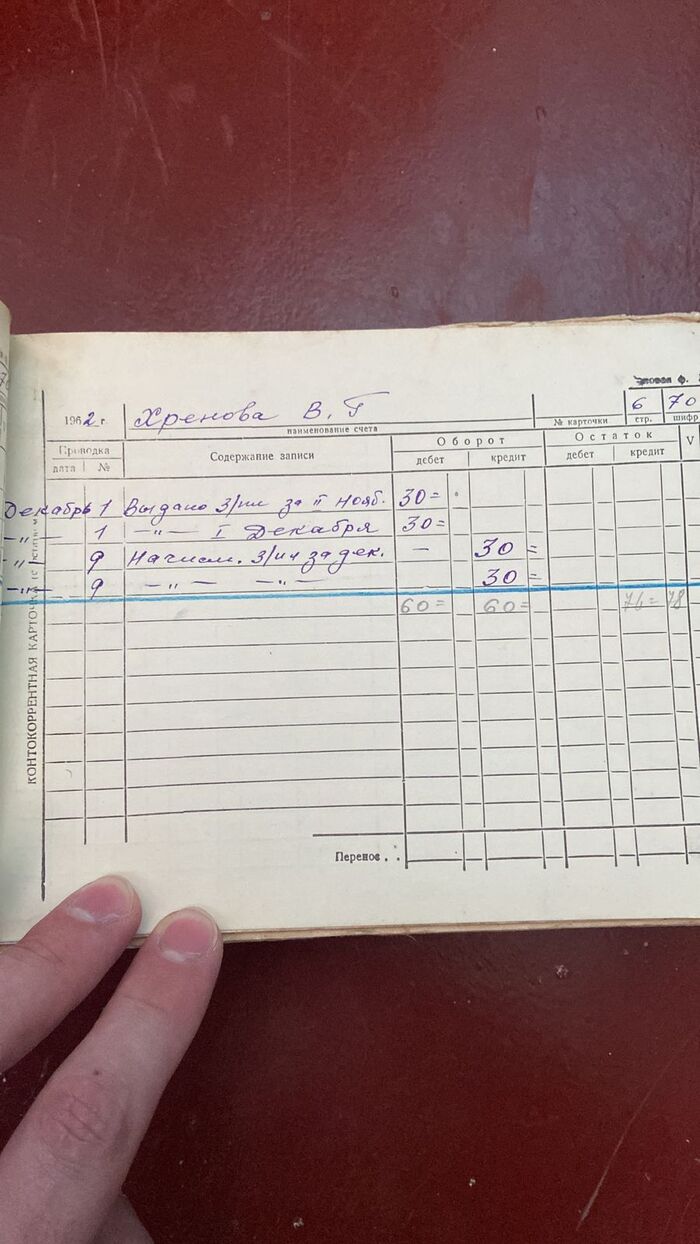 ф.
1962 г. Хренова В. Г 6 70
наименование счета № карточки стр. шифр
Проводка Содержание записи Оборот Остаток V
дата № дебет кредит дебет кредит
Декабрь 1 Выдано З/пл за II Нояб. 30=
-„- 1 -„- I Декабря 30=
-„- 9 Начисл. З/пл за дек. - 30=
-„- 9 -„- -„- 30=
60= 60= 76=78
Перенос . .
КОНТОКОРРЕНТНАЯ КАРТОЧКА